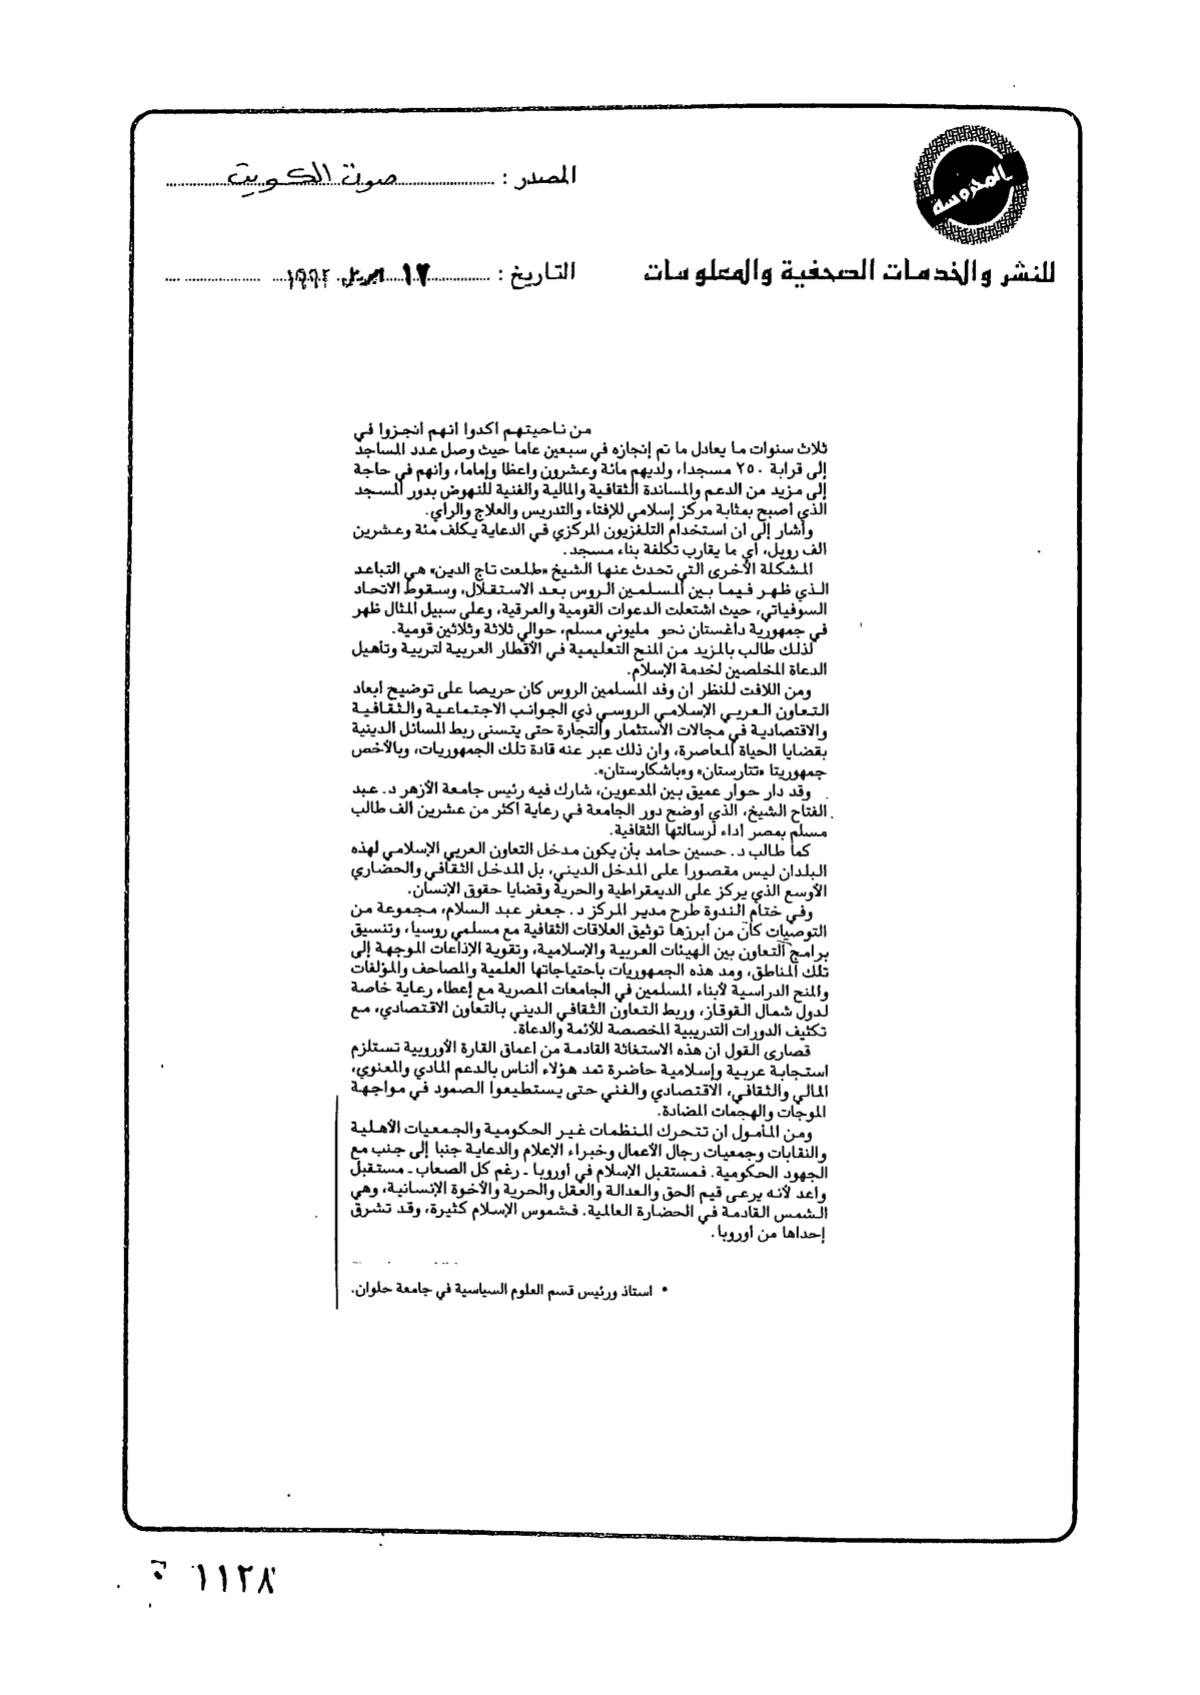 المدروسة
المصدر : صوت الكويت
للنشر والخدمات الصحفية والمعلومات
التاريخ : ١٢ ابريل ١٩٩٢
من ناحيتهم اكدوا انهم انجزوا في
ثلاث سنوات ما يعادل ما تم إنجازه في سبعين عاما حيث وصل عدد المساجد
إلى قرابة ٢٥٠ مسجدا، ولديهم مائة وعشرون واعظا وإماما، وانهم في حاجة
إلى مزيد من الدعم والمساندة الثقافية والمالية والفنية للنهوض بدور المسجد
الذي اصبح بمثابة مركز إسلامي للإفتاء والتدريس والعلاج والراي.
وأشار إلى ان استخدام التلفزيون المركزي في الدعاية يكلف مئة وعشرين
الف روبل، اي ما يقارب تكلفة بناء مسجد.
المشكلة الأخرى التي تحدث عنها الشيخ «طلعت تاج الدين» هي التباعد
الذي ظهر فيما بين المسلمين الروس بعد الاستقلال، وسقوط الاتحاد
السوفياتي، حيث اشتعلت الدعوات القومية والعرقية، وعلى سبيل المثال ظهر
في جمهورية داغستان نحو مليوني مسلم، حوالي ثلاثة وثلاثين قومية.
لذلك طالب بالمزيد من المنح التعليمية في الأقطار العربية لتربية وتأهيل
الدعاة المخلصين لخدمة الإسلام.
ومن اللافت للنظر ان وفد المسلمين الروس كان حريصا على توضيح ابعاد
التعاون العربي الإسلامي الروسي ذي الجوانب الاجتماعية والثقافية
والاقتصادية في مجالات الاستثمار والتجارة حتى يتسنى ربط المسائل الدينية
بقضايا الحياة المعاصرة، وان ذلك عبر عنه قادة تلك الجمهوريات، وبالأخص
جمهوريتا «تتارستان» و«باشكارستان».
وقد دار حوار عميق بين المدعوين، شارك فيه رئيس جامعة الأزهر د. عبد
الفتاح الشيخ، الذي اوضح دور الجامعة في رعاية اكثر من عشرين الف طالب
مسلم بمصر اداء لرسالتها الثقافية.
كما طالب د. حسين حامد بأن يكون مدخل التعاون العربي الإسلامي لهذه
البلدان ليس مقصورا على المدخل الديني، بل المدخل الثقافي والحضاري
الأوسع الذي يركز على الديمقراطية والحرية وقضايا حقوق الإنسان.
وفي ختام الندوة طرح مدير المركز د. جعفر عبد السلام، مجموعة من
التوصيات كان من ابرزها توثيق العلاقات الثقافية مع مسلمي روسيا، وتنسيق
برامج التعاون بين الهيئات العربية والإسلامية، وتقوية الإذاعات الموجهة إلى
تلك المناطق، ومد هذه الجمهوريات باحتياجاتها العلمية والمصاحف والمؤلفات
والمنح الدراسية لأبناء المسلمين في الجامعات المصرية مع إعطاء رعاية خاصة
لدول شمال القوقاز، وربط التعاون الثقافي الديني بالتعاون الاقتصادي، مع
تكثيف الدورات التدريبية المخصصة للأئمة والدعاة.
قصارى القول ان هذه الاستغاثة القادمة من اعماق القارة الأوروبية تستلزم
استجابة عربية وإسلامية حاضرة تمد هؤلاء الناس بالدعم المادي والمعنوي،
المالي والثقافي، الاقتصادي والفني حتى يستطيعوا الصمود في مواجهة
الموجات والهجمات المضادة.
ومن المأمول ان تتحرك المنظمات غير الحكومية والجمعيات الأهلية
والنقابات وجمعيات رجال الأعمال وخبراء الإعلام والدعاية جنبا إلى جنب مع
الجهود الحكومية. فمستقبل الإسلام في أوروبا - رغم كل الصعاب - مستقبل
واعد لأنه يرعى قيم الحق والعدالة والعقل والحرية والأخوة الإنسانية، وهي
الشمس القادمة في الحضارة العالمية. فشموس الإسلام كثيرة، وقد تشرق
إحداها من أوروبا.
• استاذ ورئيس قسم العلوم السياسية في جامعة حلوان.
١١٢٨